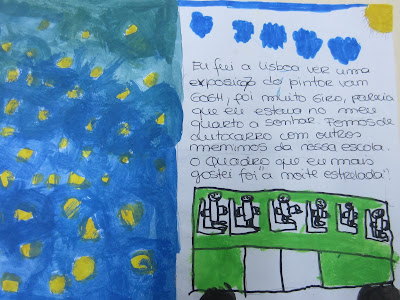 Eu fui a Lisboa ver uma
exposição do pintor vam
Gogh, foi muito giro, parecia
que eu estava no meu
quarto a sonhar. Fomos de
autocarro com outros
meninos da nossa escola.
O quadro que eu mais
gostei foi "a noite estrelada".